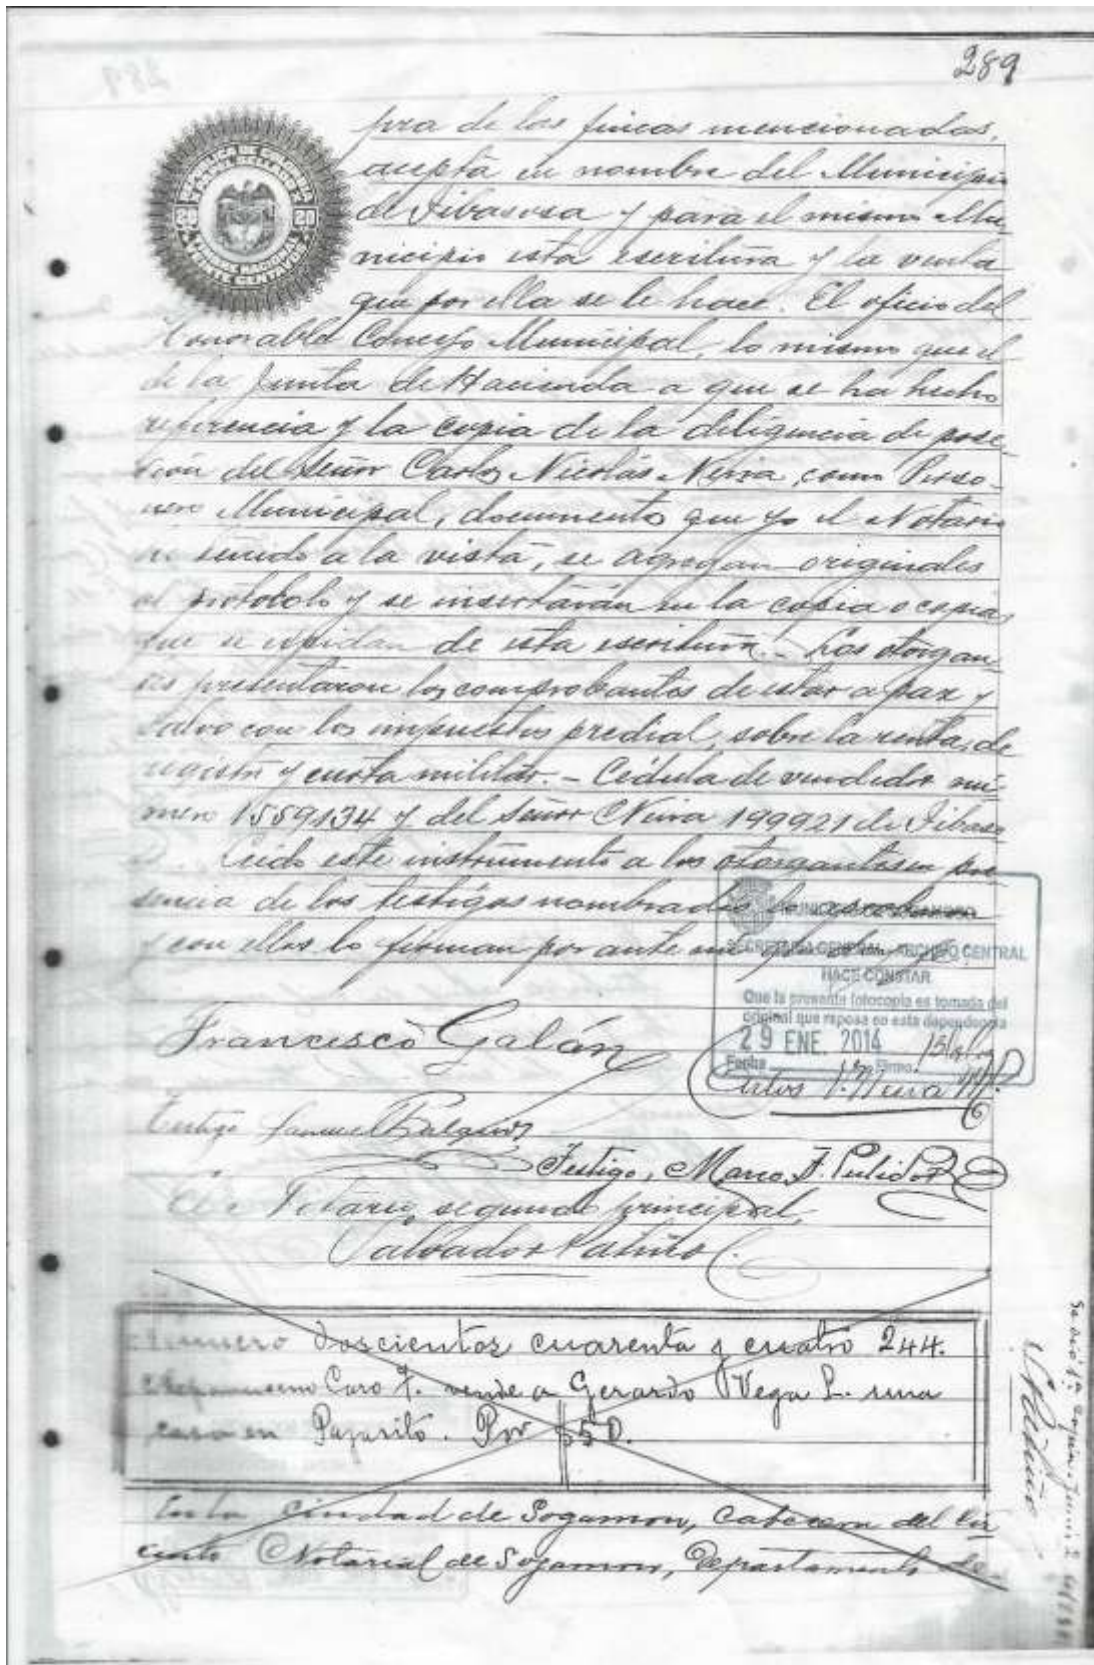 289
REPUBLICA DE COLOMBIA
PAPEL SELLADO
20 20
TIMBRE NACIONAL
VEINTE CENTAVOS
pra de las fincas mencionadas,
acepta en nombre del Municipio
de Tibasosa y para el mismo Mu-
nicipio esta escritura y la venta
que por ella se le hace. El oficio del
Honorable Concejo Municipal, lo mismo que el
de la Junta de Hacienda a que se ha hecho
referencia y la copia de la diligencia de pose-
sión del Señor Carlos Nicolás Neira, como Perso-
nero Municipal, documento que yo el Notario
he tenido a la vista, se agregan originales
al protocolo y se insertarán en la copia o copias
que se expidan de esta escritura.- Los otorgan-
tes presentaron los comprobantes de estar a paz y
salvo con los impuestos predial, sobre la renta, de
registro y cuota militar.- Cédula de vendedor nú-
mero 1559134 y del señor Neira 199921 de Tibaso
Leído este instrumento a los otorgantes en pre
sencia de los testigos nombrados lo aprobaron
y con ellos lo firman por ante mí
SECRETARIA GENERAL - ARCHIVO CENTRAL
HACE CONSTAR
Que la presente fotocopia es tomada del
original que reposa en esta dependencia
29 ENE. 2014
Fecha Firma
Francisco Galán
Carlos N. Neira
Testigo Samuel
Testigo, Marco F. Pulido
El Notario segundo principal,
Salvador Patiño
Número doscientos cuarenta y cuatro 244.
Chepomuseno Caro F. vende a Gerardo Vega L. una
casa en Pajarito. Por $50.
En la ciudad de Sogamoso, Cabecera del Cir
cuito Notarial de Sogamoso, Departamento de
Se dió 1ª copia Junio 2
Patiño